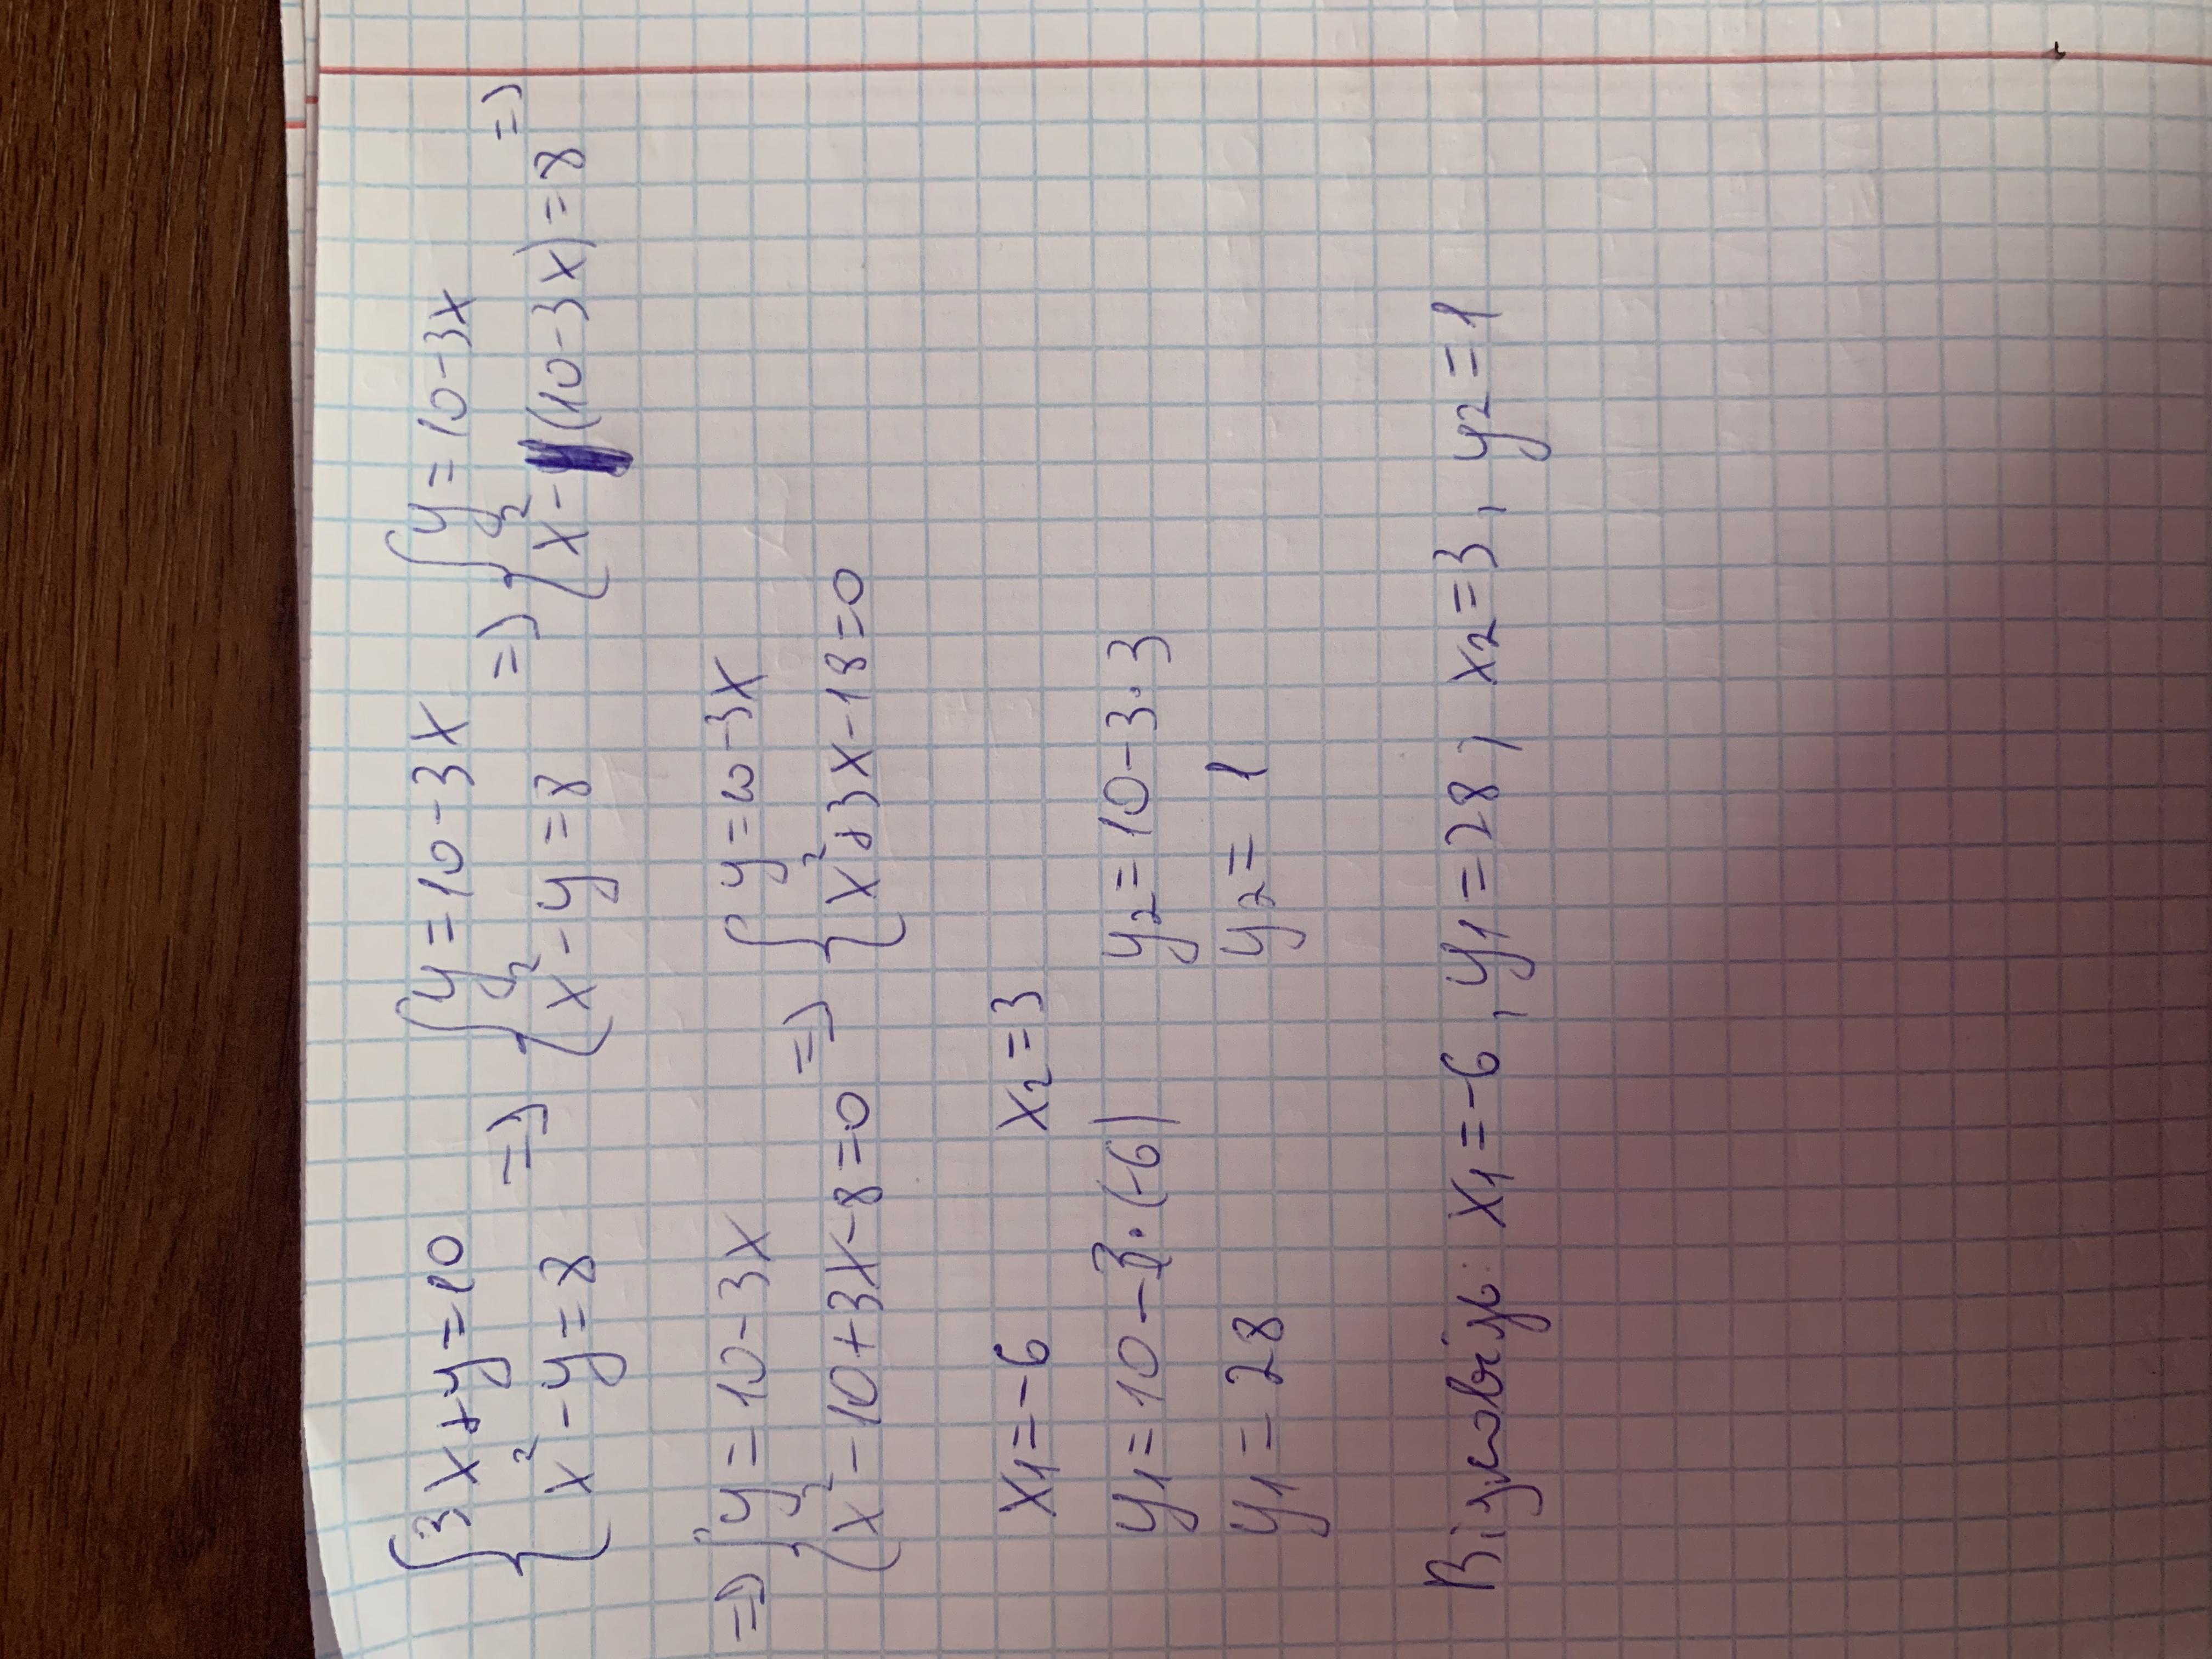 {3x+y=10 => {y=10-3x => {y=10-3x =>
{x²-y=8 {x²-y=8 {x²-(10-3x)=8
=> {y=10-3x => {y=10-3x
{x²-10+3x-8=0 {x²+3x-18=0
x₁=-6 x₂=3
y₁=10-3·(-6) y₂=10-3·3
y₁=28 y₂=1
Відповідь: x₁=-6, y₁=28; x₂=3, y₂=1